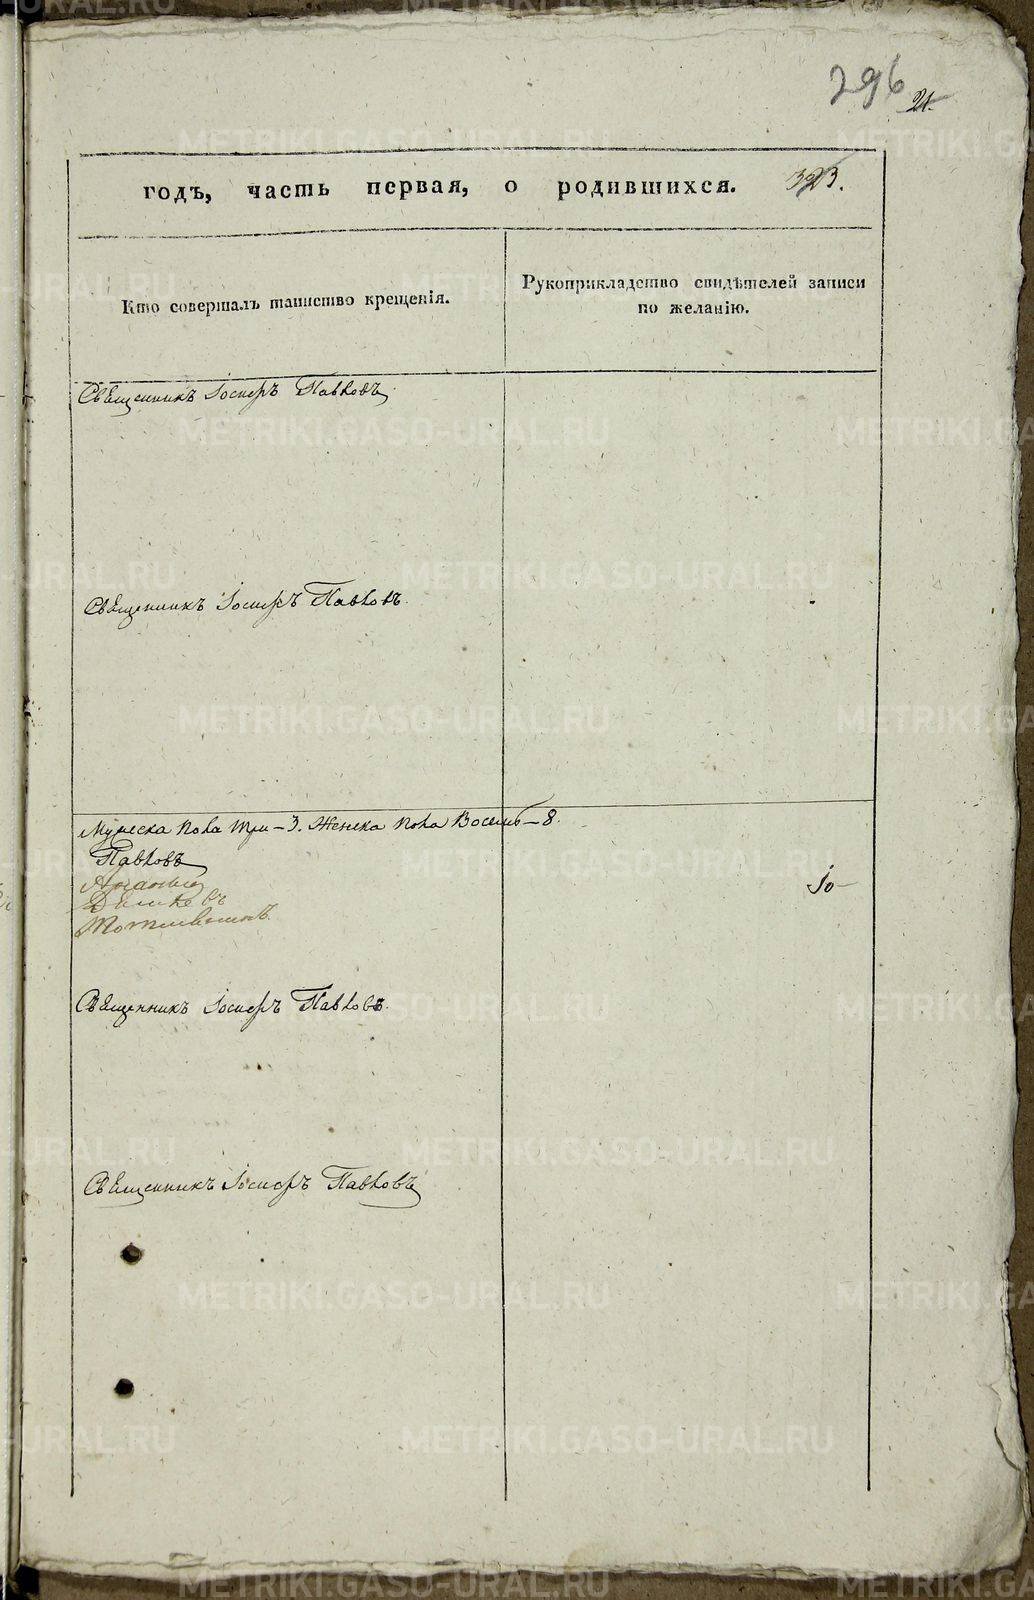 296
21.
годъ, часть первая, о родившихся. 323.
Кто совершалъ таинство крещенія.
Рукоприкладство свидѣтелей записи
по желанію.
Священникъ Іосифъ Павловъ
Священникъ Іосифъ Павловъ.
Мужеска пола три – 3. Женска пола Восемь – 8.
Павловъ
Священникъ Іосифъ Павловъ.
Священникъ Іосифъ Павловъ
METRIKI.GASO-URAL.RU